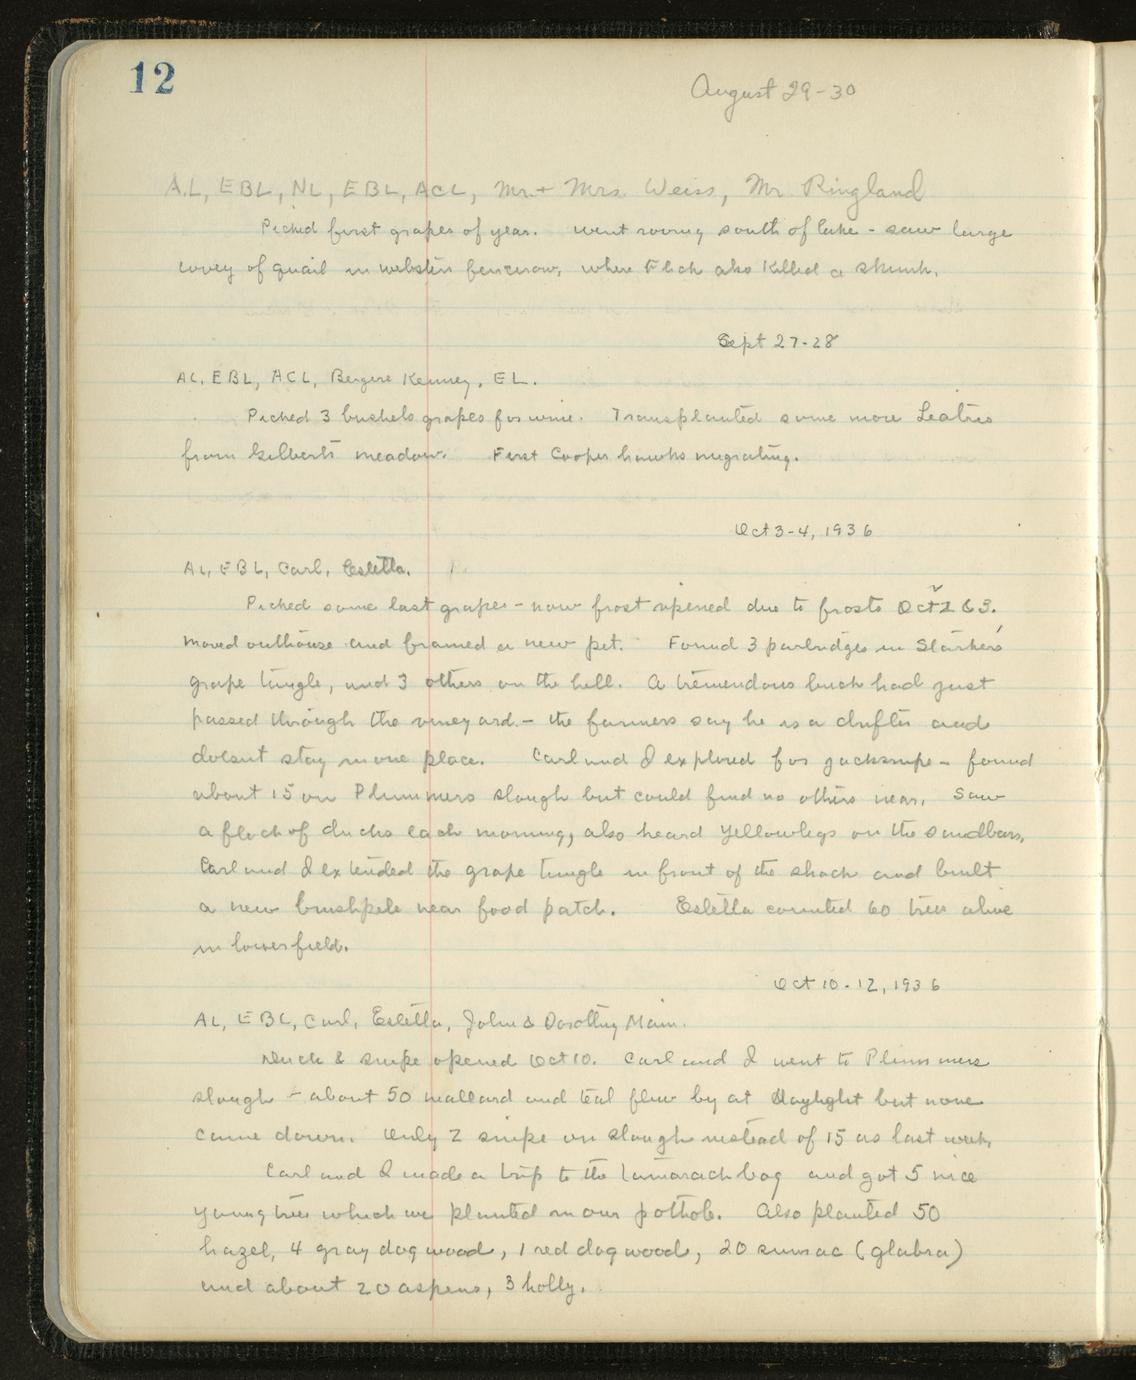 12
August 29-30
A.L, EBL, NL, EBL, ACL, Mr + Mrs Weiss, Mr Ringland
Picked first grapes of year. Went roving south of lake - saw large
covey of quail in Websters fencerow, where Flick also killed a skunk.
Sept 27-28
AL, EBL, ACL, Bergere Kenney, EL.
Picked 3 bushels grapes for wine. Transplanted some more Leatris
from Gilberts meadow. First Cooper hawks migrating.
Oct 3-4, 1936
AL, EBL, Carl, Estella.
Picked some last grapes - now frost ripened due to frosts Oct 2 & 3.
Moved outhouse and framed a new pit. Found 3 partridges in
grape tangle, and 3 others on the hill. A tremendous buck had just
passed through the vineyard - the farmers say he is a drifter and
doesnt stay in one place. Carl and I explored for jacksnipe - found
about 15 on Plummers slough but could find no others near. Saw
a flock of ducks each morning, also heard yellowlegs on the sandbars.
Carl and I extended the grape tangle in front of the shack and built
a new brushpile near food patch. Estella counted 60 trees alive
in lower field.
Oct 10-12, 1936
AL, EBL, Carl, Estella, John & Dorothy Main.
Duck & snipe opened Oct 10. Carl and I went to Plummers
slough - about 50 mallard and teal flew by at daylight but none
came down. Only 2 snipe on slough instead of 15 as last week.
Carl and I made a trip to the tamarack bog and got 5 nice
young trees which we planted in our pothole. Also planted 50
hazel, 4 gray dogwood, 1 red dogwood, 20 sumac (glabra)
and about 20 aspens, 3 holly.